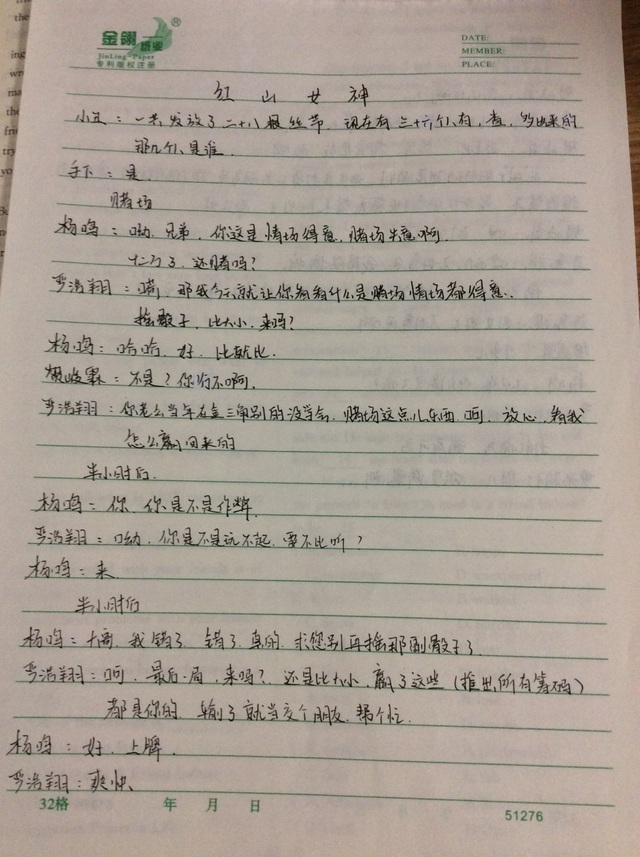 金翎纸业
JinLing-Paper
专利版权注册
DATE:
MEMBER:
PLACE:
红山女神
小丑：一共发放了二十八根丝带，现在有三十六个人有，查，多出来的
那几个人是谁.
手下：是
赌场
杨鸣：呦，兄弟，你这是情场得意，赌场失意啊.
十二万了，还赌吗？
严浩翔：嘴，那我今天就让你看看什么是赌场情场都得意.
摇骰子，比大小，来吗？
杨鸣：哈哈，好，比就比.
贺峻霖：不是？你行不啊.
严浩翔：你老公当年在金三角别的没学会，赌场这点儿东西，呵，放心，看我
怎么赢回来的
半小时后.
杨鸣：你，你是不是作弊.
严浩翔：呦，你是不是玩不起，要不比听？
杨鸣：来
半小时后
杨鸣：大哥，我错了，错了，真的，求您别再摇那副骰子了
严浩翔：呵，最后一局，来吗？还是比大小，赢了这些（推出所有筹码）
都是你的，输了就当交个朋友，帮个忙.
杨鸣：好，上牌.
严浩翔：爽快
32格 年 月 日 51276